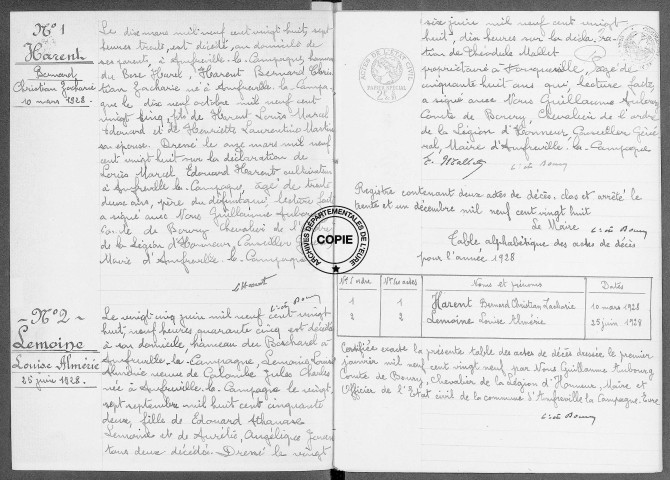 N° 1
Harent
Bernard
Christian Zacharie
10 mars 1928.
Le dix mars mil neuf cent vingt huit, sept
heures trente, est décédé, au domicile de
ses parents, à Amfreville la Campagne, hameau
du Bosc Harel, Harent Bernard Chris
tian Zacharie né à Amfreville la Campa-
gne le dix neuf octobre mil neuf cent
vingt cinq, fils de Harent Louis Marcel
Edouard et de Henriette Laurentine Martin
son épouse. Dressé le onze mars mil neuf
cent vingt huit sur la déclaration de
Louis Marcel Edouard Harent cultivateur
à Amfreville la Campagne, âgé de trente
deux ans, père du défunt qui, lecture faite
a signé avec Nous Guillaume Aubourg
Comte de Boury Chevalier de l'ordre
de la Légion d'Honneur, Conseiller
Maire d'Amfreville-la-Campagne
LHarent
Cte de Boury
N° 2
Lemoine
Louise Almérie
25 juin 1928.
Le vingt cinq juin mil neuf cent vingt
huit, neuf heures quarante cinq est décédée
à son domicile hameau du
Amfreville-la-Campagne, Lemoine Louise
Almérie veuve de Jules Charles
née à Amfreville-la-Campagne le vingt
sept septembre mil huit cent cinquante
deux, fille de Edouard Athanase
Lemoine et de Aurélie, Angélique
tous deux décédés. Dressé le vingt
ARCHIVES DÉPARTEMENTALES DE L'EURE
COPIE
six juin mil neuf cent vingt
huit, dix heures sur la décla ra-
tion de Théodule Mallet
propriétaire à Fouqueville, âgé de
cinquante huit ans qui, lecture faite,
a signé avec Nous Guillaume Aubourg
Comte de Boury, Chevalier de l'ordre
de la Légion d'Honneur, Conseiller Géné
ral, Maire d'Amfreville-la-Campagne
T. Mallet Cte de Boury
Registre contenant deux actes de décès, clos et arrêté le
trente et un décembre mil neuf cent vingt huit
Le Maire Cte de Boury
Table alphabétique des actes de décès
pour l'année 1928
N° d'ordre N° des actes Noms et prénoms Dates
1 1 Harent Bernard Christian Zacharie 10 mars 1928
2 2 Lemoine Louise Almérie 25 juin 1928
Certifiée exacte la présente table des actes de décès dressée le premier
janvier mil neuf cent vingt neuf par Nous Guillaume Aubourg
Comte de Boury, Chevalier de la Légion d'Honneur, Maire et
Officier de l'Etat civil de la commune d'Amfreville la Campagne. Eure
Cte de Boury